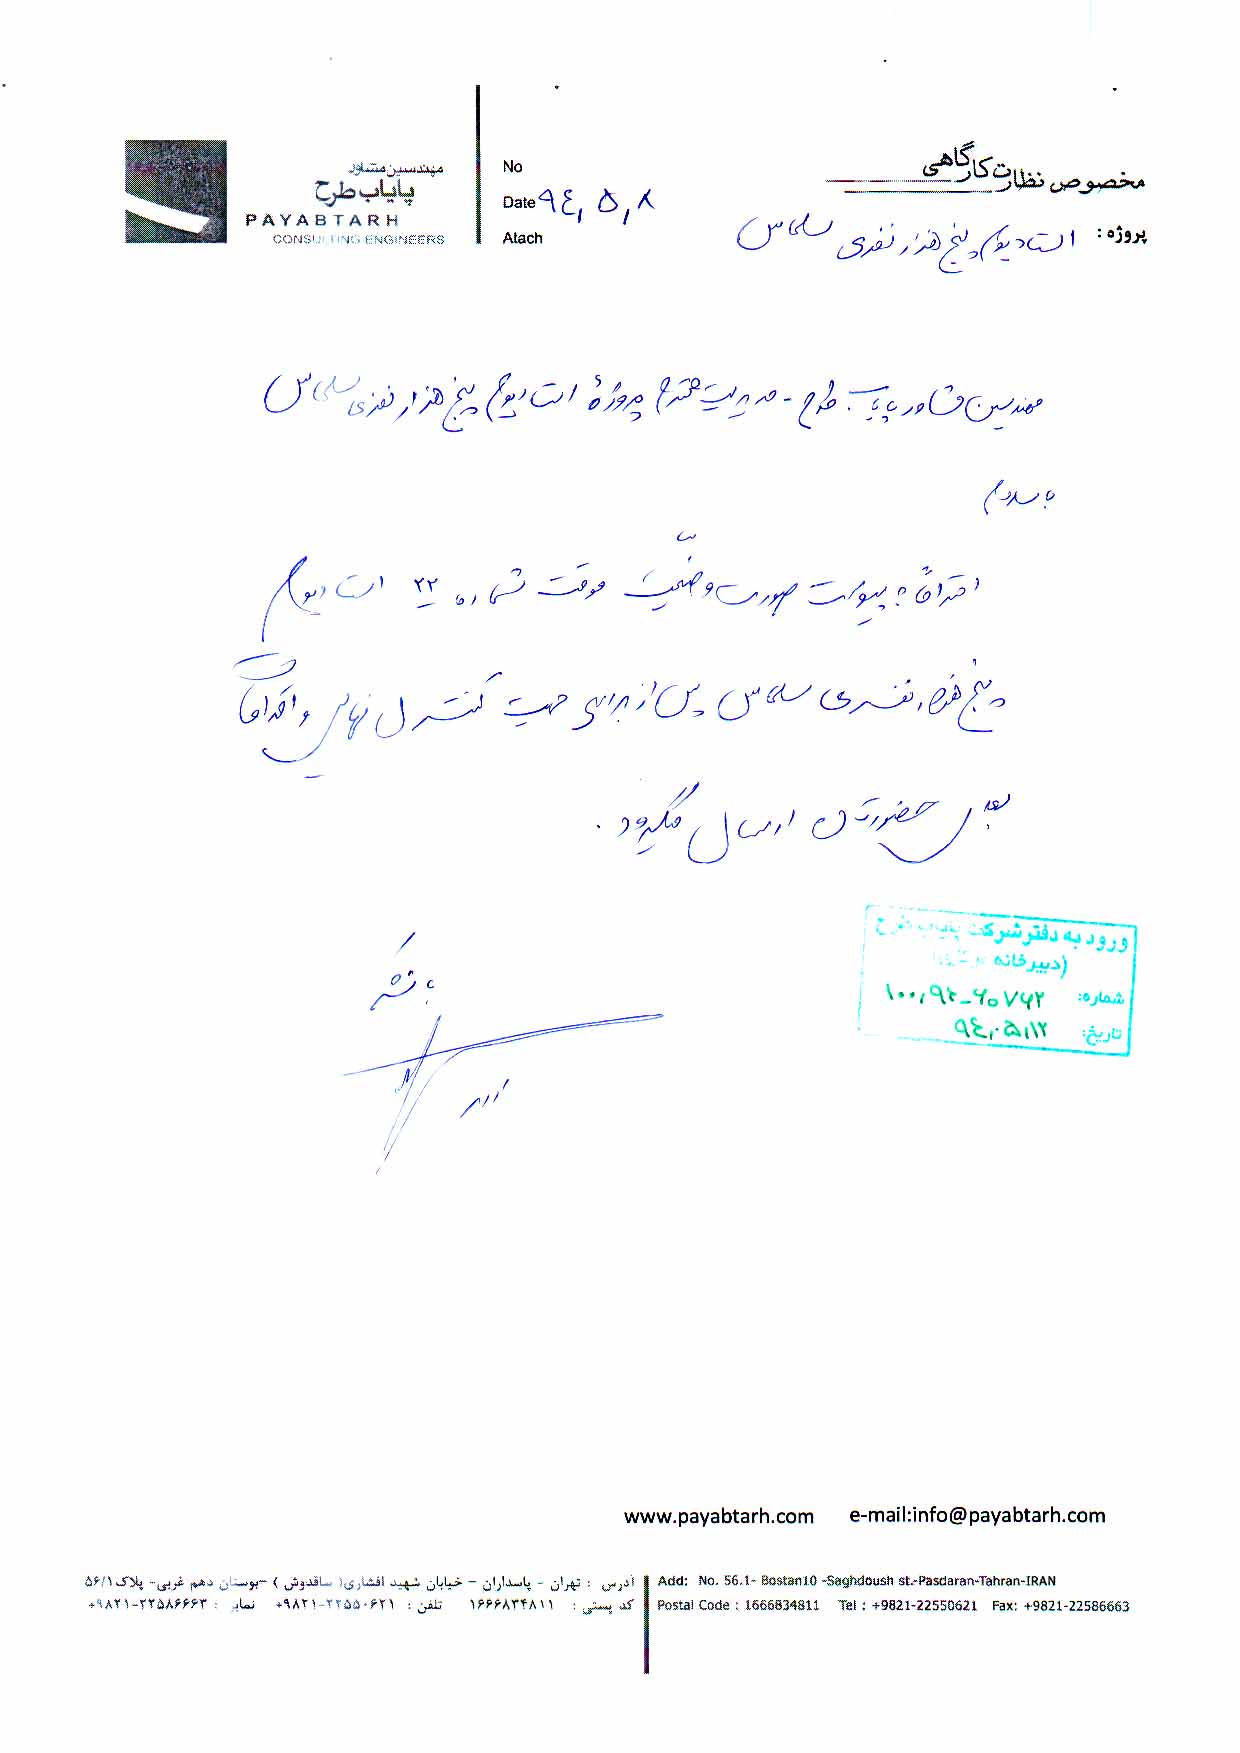 مهندسین مشاور
پایاب طرح
PAYABTARH
CONSULTING ENGINEERS
No
Date ۹٤,۵,۸
Atach
مخصوص نظارت کارگاهی
پروژه : استادیوم پنج هزار نفری سلماس
مهندسین مشاور پایاب طرح - مدیریت محترم پروژهٔ استادیوم پنج هزار نفری سلماس
با سلام
احتراماً به پیوست صورت وضعیت موقت شماره ۲۲ استادیوم
پنج هزار نفری سلماس پس از بررسی جهت کنترل نهایی و اقدامات
بعدی حضورتان ارسال میگردد .
با تشکر
ورود به دفتر شرکت پایاب طرح
(دبیرخانه مرکزی)
شماره: ۱۰۰,۹٤-۲۰۷۶۲
تاریخ: ۹٤,۰۵,۱۲
www.payabtarh.com e-mail:info@payabtarh.com
آدرس : تهران - پاسداران - خیابان شهید افشاری( ساقدوش ) -بوستان دهم غربی- پلاک۵۶/۱
کد پستی : ۱۶۶۶۸۳۴۸۱۱ تلفن : ۹۸۲۱-۲۲۵۵۰۶۲۱+ نمابر : ۹۸۲۱-۲۲۵۸۶۶۶۳+
Add: No. 56.1- Bostan10 -Saghdoush st.-Pasdaran-Tahran-IRAN
Postal Code : 1666834811 Tel : +9821-22550621 Fax: +9821-22586663